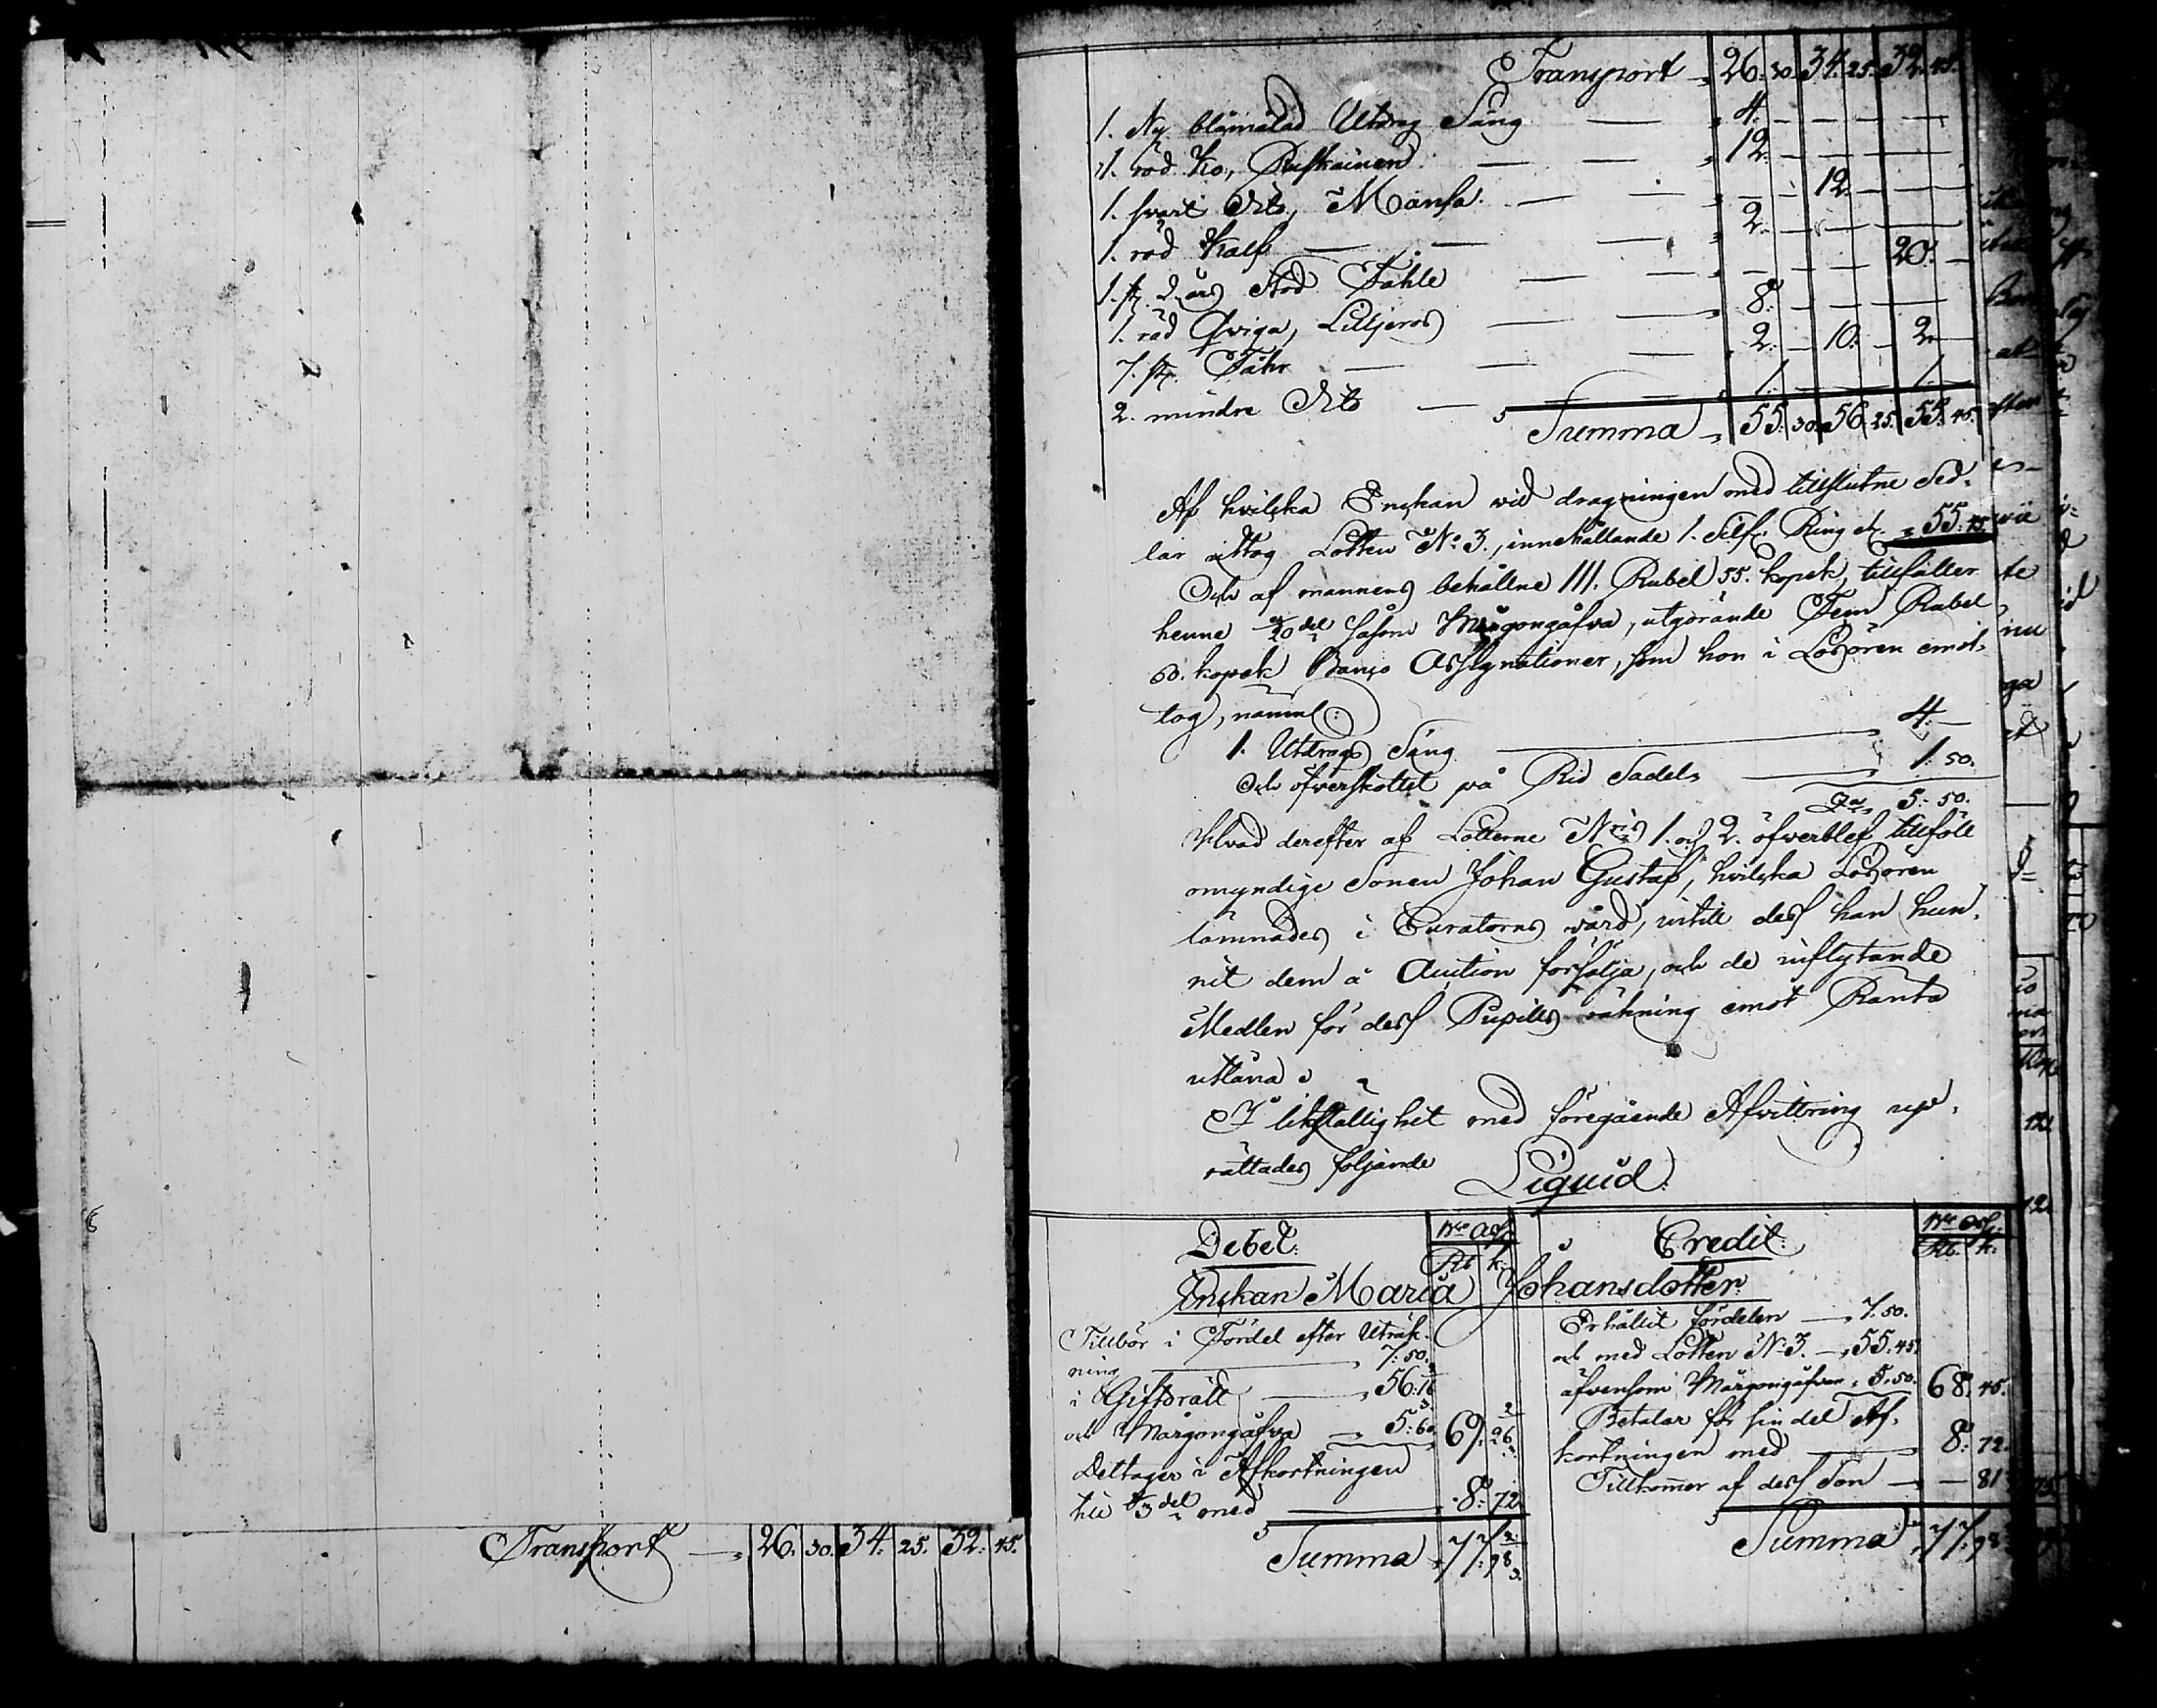 Transport 26. 30. 34. 25. 32. 45.
Transport 26. 30. 34. 25. 32. 45.
1. Ny blåmålad Utdrag Säng 4. — — — — —
1. röd Ko, Ruskainen 12. — — — — —
1. svart dito, Mansa. — — 12. — — —
1. röd Kalf 2. — — — — —
1. st. 2. års Stod Fåhle — — — — 20. —
1. röd Qviga, Lilljeros 8. — — — — —
7. st. Fåhr 2. — 10. — 2. —
2. mindre dito 1. — — — 1. —
Summa 55. 30. 56. 25. 55. 45.
Af hvilka Enckan wid dragningen med tillslutne Sed-
lar uttog Lotten No 3., innehållande 1. Silf. Ring etc. 55. 45.
Och af mannens behållne 111. Rubel 55. kopek, tillfaller
henne 1/20 del såsom Mårgongåfva, utgörande Fem Rubel
60. kopek Banco Assignationer, som hon i Lösören emot-
tog, nämnl:
1. Utdrags Säng 4. —
Och öfverskottet på Rid Sadeln 1. 50.
5. 50.
Hvad derefter af Lotterne No 1. och 2. öfverblef tillföll
omyndige Sonen Johan Gustaf, hvilka Lösören
lämnades i Curatorns vård, intill dess han hun-
nit dem å Auction försälja, och de inflytande
Medlen för dess Pupills räkning emot Ränta
utlåna.
I likställighet med föregående Afvittring upp-
rättades följande
Liquid.
Debet. Bco Ass. Credit. Bco Ass.
Rb k. Rb. k.
Enckan Maria Johansdotter.
Tillbör i Fördel efter Uträk-
ning 7: 50.
i Giftorätt 56: 16 2/3
och Mårgongåfva 5: 60. 69. 26 2/3
Deltager i Afkortningen
till 1/3 del med 8: 72
Summa 77: 98 2/3
Erhållit fördelen 7. 50.
och med Lotten No 3. 55. 45.
äfvensom Mårgongåfvan 5. 50. 68. 45.
Betalar för sin del Af-
kortningen med 8: 72.
Tillkommer af dess Son — 81
Summa 77: 98